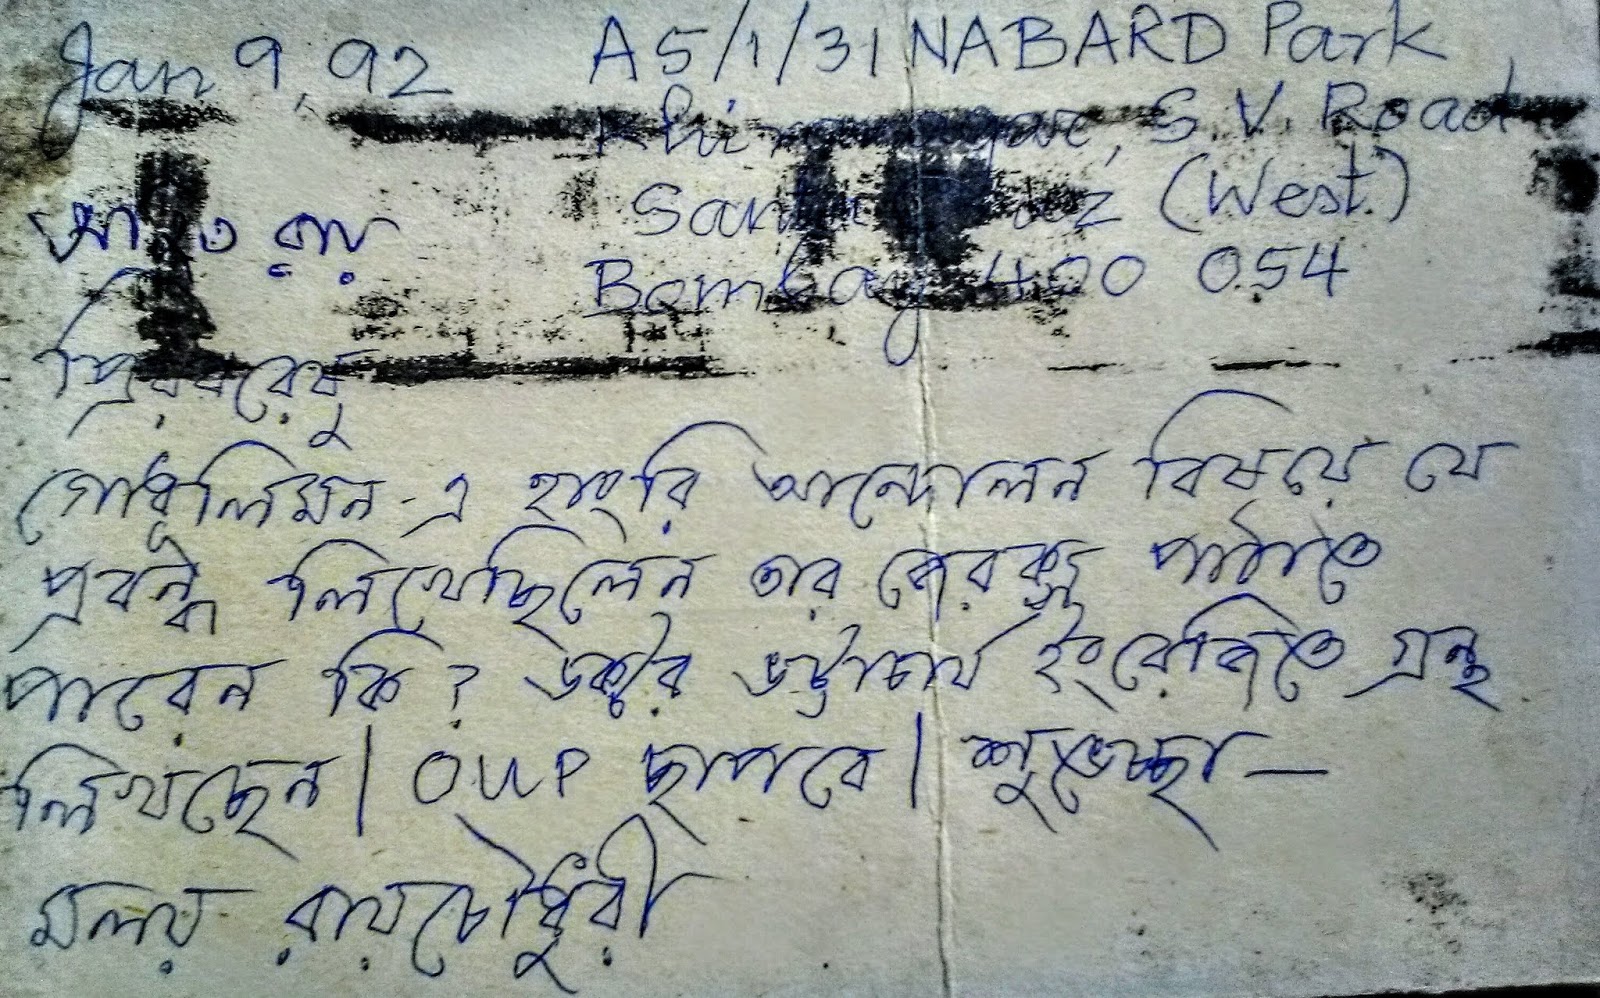 Jan 9, 92
A5/1/31 NABARD Park
S.V. Road
(West)
Bombay 400 054
রায়
প্রিয়বরেষু
গোধূলিমন-এ হাংরি আন্দোলন বিষয়ে যে
প্রবন্ধ লিখেছিলেন তার জেরক্স পাঠাতে
পারেন কি? ডক্টর ভট্টাচার্য ইংরেজিতে গ্রন্থ
লিখছেন। OUP ছাপবে। শুভেচ্ছা—
মলয় রায়চৌধুরী